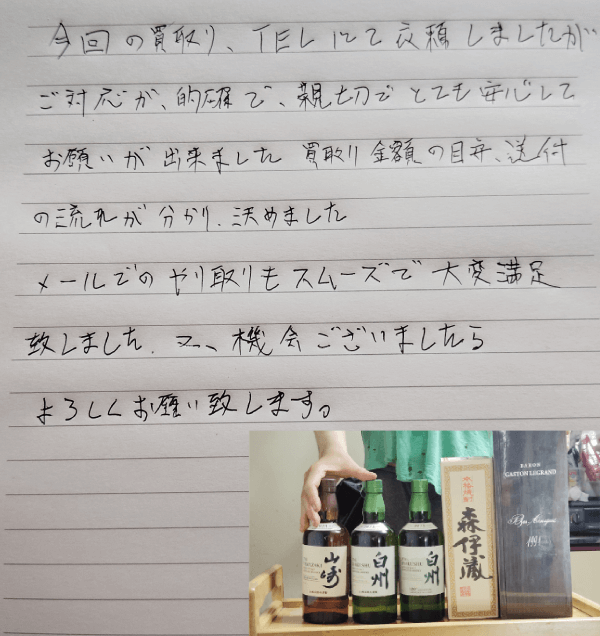 今回の買取り、TELにて依頼しましたが
ご対応が、的確で、親切でとても安心して
お願いが出来ました 買取り金額の目安、送付
の流れが分かり、決めました
メールでのやり取りもスムーズで大変満足
致しました。又、機会ございましたら
よろしくお願い致します。
山崎
白州
白州
本格焼酎
森伊蔵
BARON
GASTON LEGRAND
Bas Armagnac